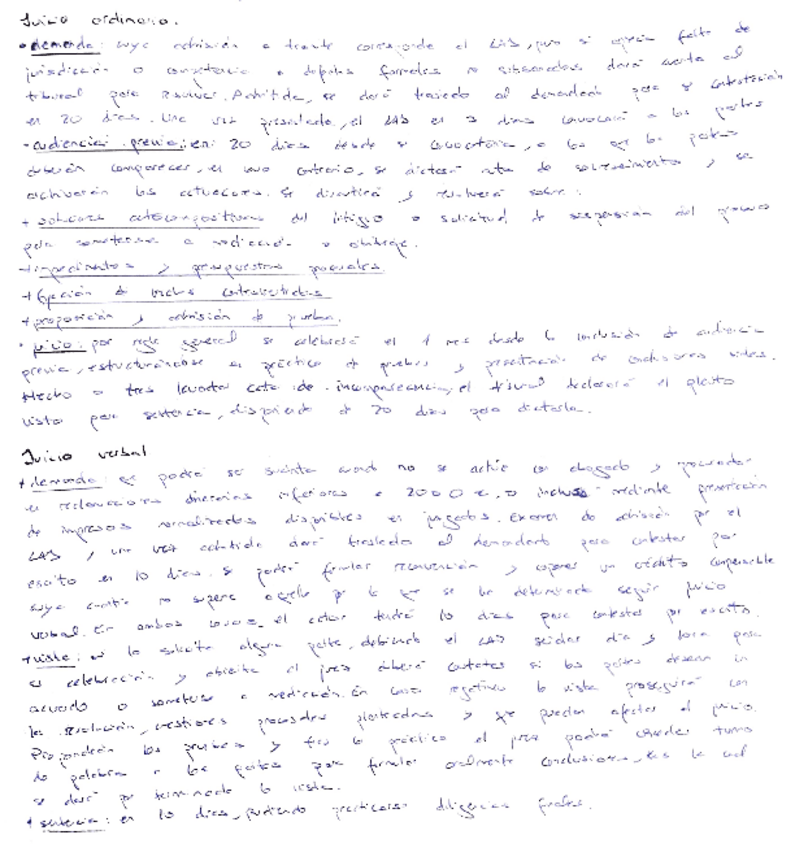 Juicio ordinario.
• demanda: cuya admisión a trámite corresponde al LAJ, pero si aprecia falta de
jurisdicción o competencia o defectos formales no subsanados, dará cuenta al
tribunal para resolver. Admitida, se dará traslado al demandado para contestación
en 20 días. Una vez presentada, el LAJ en 3 días convocará a las partes
• audiencia previa: en 20 días desde la convocatoria, a la que las partes
deberán comparecer, en caso contrario, se dictará auto de sobreseimiento y se
archivarán las actuaciones. Se discutirá y resolverá sobre:
+ soluciones autocompositivas del litigio o solicitud de suspensión del proceso
para someterse a mediación o arbitraje.
+ impedimentos y presupuestos procesales.
+ fijación de hechos controvertidos
+ proposición y admisión de prueba.
• juicio: por regla general se celebrará en 1 mes desde la conclusión de audiencia
previa, estructurándose en práctica de pruebas y presentación de conclusiones
Hecho o tras levantar acta de incomparecencia, el tribunal declarará el pleito
visto para sentencia, disponiendo de 20 días para dictarla.
Juicio verbal
+ demanda: se podrá ser sucinta cuando no se actúe con abogado y procurador
en reclamaciones dinerarias inferiores a 2000 €, o incluso mediante presentación
de impresos normalizados disponibles en juzgados. Examen de admisión por el
LAJ, y una vez admitida dará traslado al demandado para contestar por
escrito en 10 días. Se podrá formular reconvención y oponer un crédito compensable
cuya cuantía no supere aquella por la que se ha determinado seguir juicio
verbal. En ambos casos, el actor tendrá 10 días para contestar por escrito.
+ vista: si lo solicita alguna parte, debiendo el LAJ señalar día y hora para
su celebración y abierta el juez deberá constatar si las partes desean un
acuerdo o someterse a mediación. En caso negativo la vista proseguirá con
la resolución, cuestiones procesales planteadas y que puedan afectar al juicio.
Propondrán las pruebas y tras la práctica el juez podrá conceder turno
de palabra a las partes para formular oralmente conclusiones, tras lo cual
se dará por terminada la vista.
+ sentencia: en 10 días, pudiendo practicarse diligencias finales.